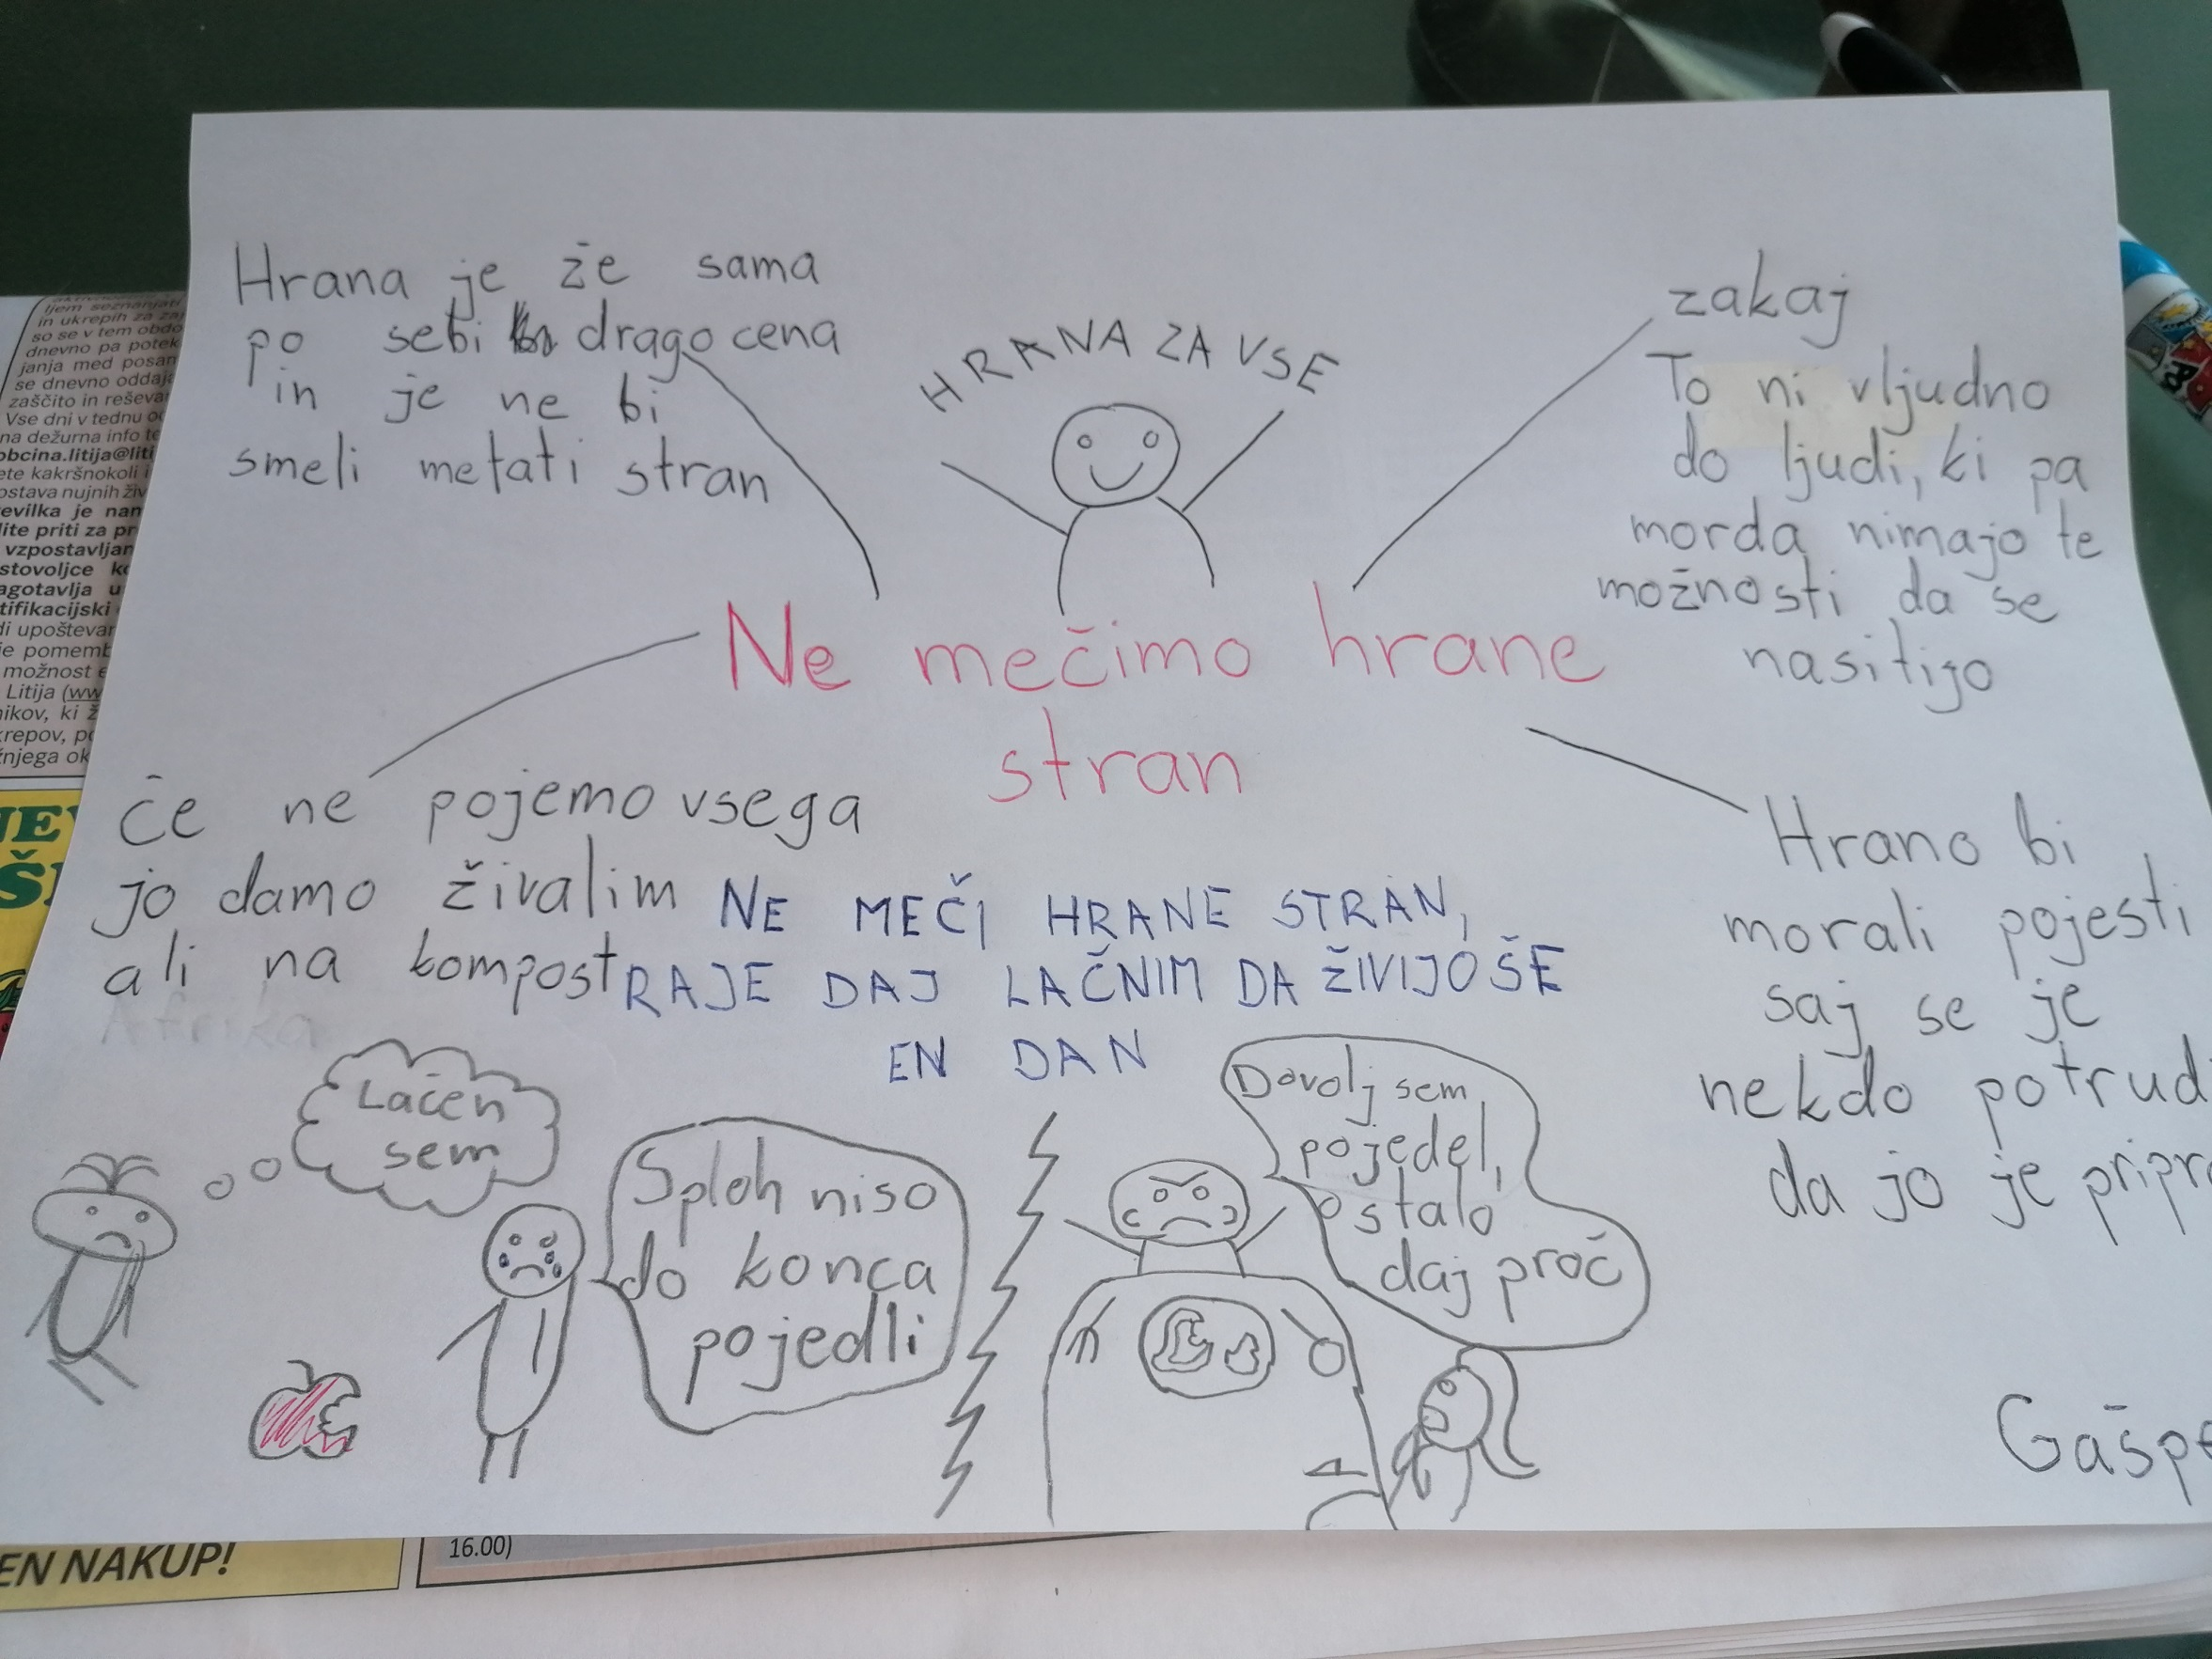 Hrana je že sama
po sebi dragocena
in je ne bi
smeli metati stran
HRANA ZA VSE
zakaj
To ni vljudno
do ljudi, ki pa
morda nimajo te
možnosti da se
nasitijo
Ne mečimo hrane
stran
če ne pojemo vsega
jo damo živalim
ali na kompost
Afrika
NE MEČI HRANE STRAN,
RAJE DAJ LAČNIM DA ŽIVIJO ŠE
EN DAN
Hrano bi
morali pojesti
saj se je
nekdo potrud
da jo je pripr
Lačen
sem
Sploh niso
do konca
pojedli
Dovolj sem
pojedel,
ostalo
daj proč
Gašpe
ljem seznanjati
in ukrepih za zaj
so se v tem obdo
dnevno pa potek
janja med posam
se dnevno oddaja
zaščito in reševa
Vse dni v tednu
na dežurna info te
obcina.litija@liti
ete kakršnokoli i
ostava nujnih živ
evilka je nam
lite priti za pr
vzpostavljan
stovoljce
agotavlja u
tifikacijski
di upoštevar
je pomemb
možnost
Litija (ww
nikov, ki ž
krepov, po
žnjega ok
EN NAKUP!
16.00)